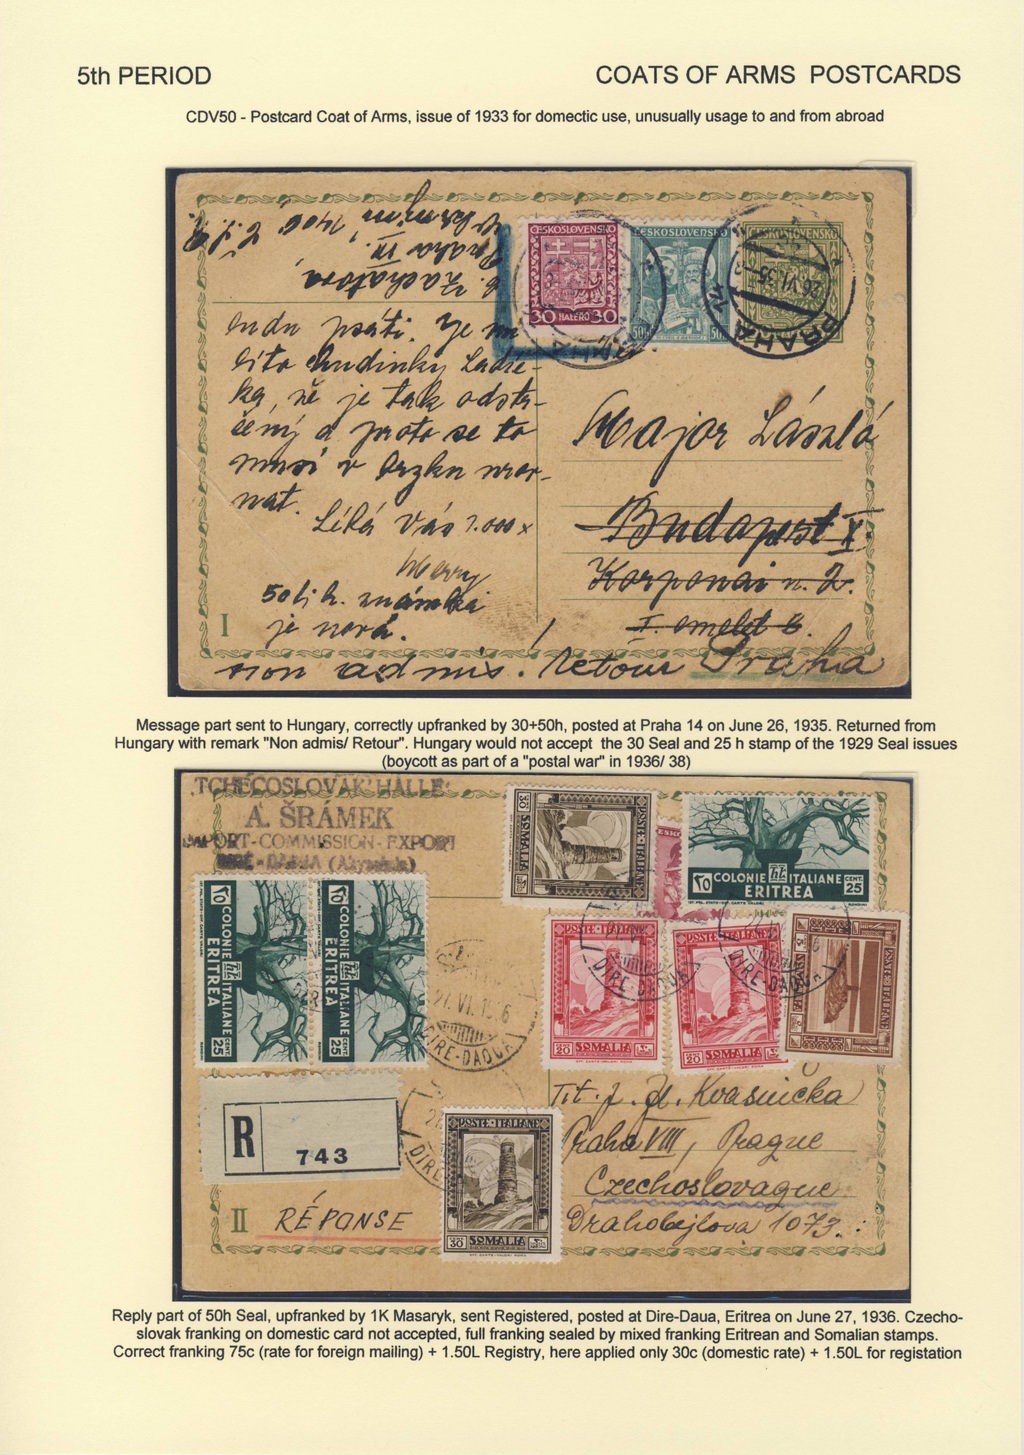 5th PERIOD
COATS OF ARMS POSTCARDS
CDV50 - Postcard Coat of Arms, issue of 1933 for domectic use, unusually usage to and from abroad
Praha VII.
ČESKOSLOVENSKO
30 HALÉŘŮ 30
ČESKOSLOVENSKO
50h
ČESKOSLOVENSKO
PRAHA 14
26 VI 35
budu psáti. Je mi
líto hudinky Ladič-
ka, že je tak odstr-
čený a proto se to
musí v
nat.
Líbá Vás 1.000 x
50ti h. známka
je nová.
Major László
Budapest X.
Korponai u. 2.
I. emelet 6.
I
non admis! retour Praha
Message part sent to Hungary, correctly upfranked by 30+50h, posted at Praha 14 on June 26, 1935. Returned from
Hungary with remark "Non admis/ Retour". Hungary would not accept the 30 Seal and 25 h stamp of the 1929 Seal issues
(boycott as part of a "postal war" in 1936/ 38)
TCHÉCOSLOVAK HALLE
A. ŠRÁMEK
IMPORT-COMMISSION-EXPORT
DIRÉ-DAUA
POSTE ITALIANE
30 SOMALIA
COLONIE ITALIANE
ERITREA
CENT. 25
COLONIE ITALIANE
ERITREA
CENT. 25
COLONIE ITALIANE
ERITREA
CENT. 25
POSTE ITALIANE
20 SOMALIA
POSTE ITALIANE
20 SOMALIA
POSTE ITALIANE
SOMALIA
DIRE-DAOUA
DIRE-DAOUA
27 VI 1936
DIRE-DAOUA
R
743
POSTE ITALIANE
30 SOMALIA
Tit. p. Kvasnička
Praha VIII, Prague
Czechoslovaque
Drahobejlova 1073.
II
RÉPONSE
Reply part of 50h Seal, upfranked by 1K Masaryk, sent Registered, posted at Dire-Daua, Eritrea on June 27, 1936. Czecho-
slovak franking on domestic card not accepted, full franking sealed by mixed franking Eritrean and Somalian stamps.
Correct franking 75c (rate for foreign mailing) + 1.50L Registry, here applied only 30c (domestic rate) + 1.50L for registation